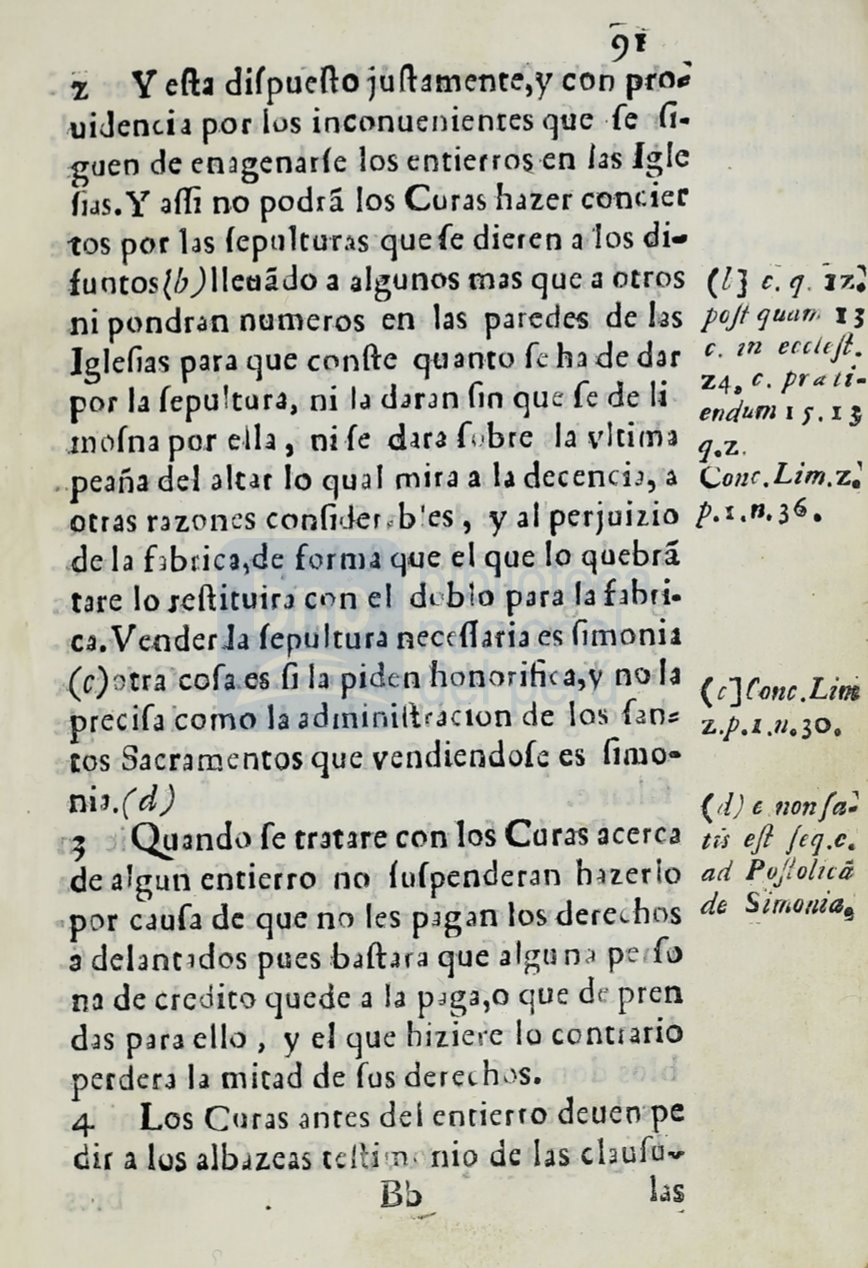 91
2 Y eſta diſpueſto juſtamente,y con pro-
uidencia por los inconuenientes que ſe ſi-
guen de enagenarſe los entierros en las Igle
ſias.Y aſſi no podrã los Curas hazer concier
tos por las ſepulturas que ſe dieren a los di-
funtos(b)lleuãdo a algunos mas que a otros
ni pondran numeros en las paredes de las
Igleſias para que conſte quanto ſe ha de dar
por la ſepultura, ni la daran ſin que ſe de li
moſna por ella, ni ſe dara ſobre la vltima
peaña del altar lo qual mira a la decencia, a
otras razones conſiderables, y al perjuizio
de la fabrica,de forma que el que lo quebrã
tare lo reſtituira con el doblo para la fabri-
ca.Vender la ſepultura neceſſaria es ſimonia
(c)otra coſa es ſi la piden honorifica,y no la
preciſa como la adminiſtracion de los ſan-
tos Sacramentos que vendiendoſe es ſimo-
nia.(d)
3 Quando ſe tratare con los Curas acerca
de algun entierro no ſuſpenderan hazerlo
por cauſa de que no les pagan los derechos
a delantados pues baſtara que alguna perſo
na de credito quede a la paga,o que de pren
das para ello, y el que hiziere lo contrario
perdera la mitad de ſus derechos.
4 Los Curas antes del entierro deuen pe
dir a los albazeas teſtimonio de las clauſu-
Bb las
(l] c. q. 12.
poſt quam 13
c. in eccleſt.
24. c. præ ti-
endum 15. 13
q.2.
Conc.Lim.2.
p.1.n.36.
(c]Conc.Lim
2.p.1.n.30.
(d) c non ſa-
tis eſt ſeq.c.
ad Poſtolicã
de Simonia.